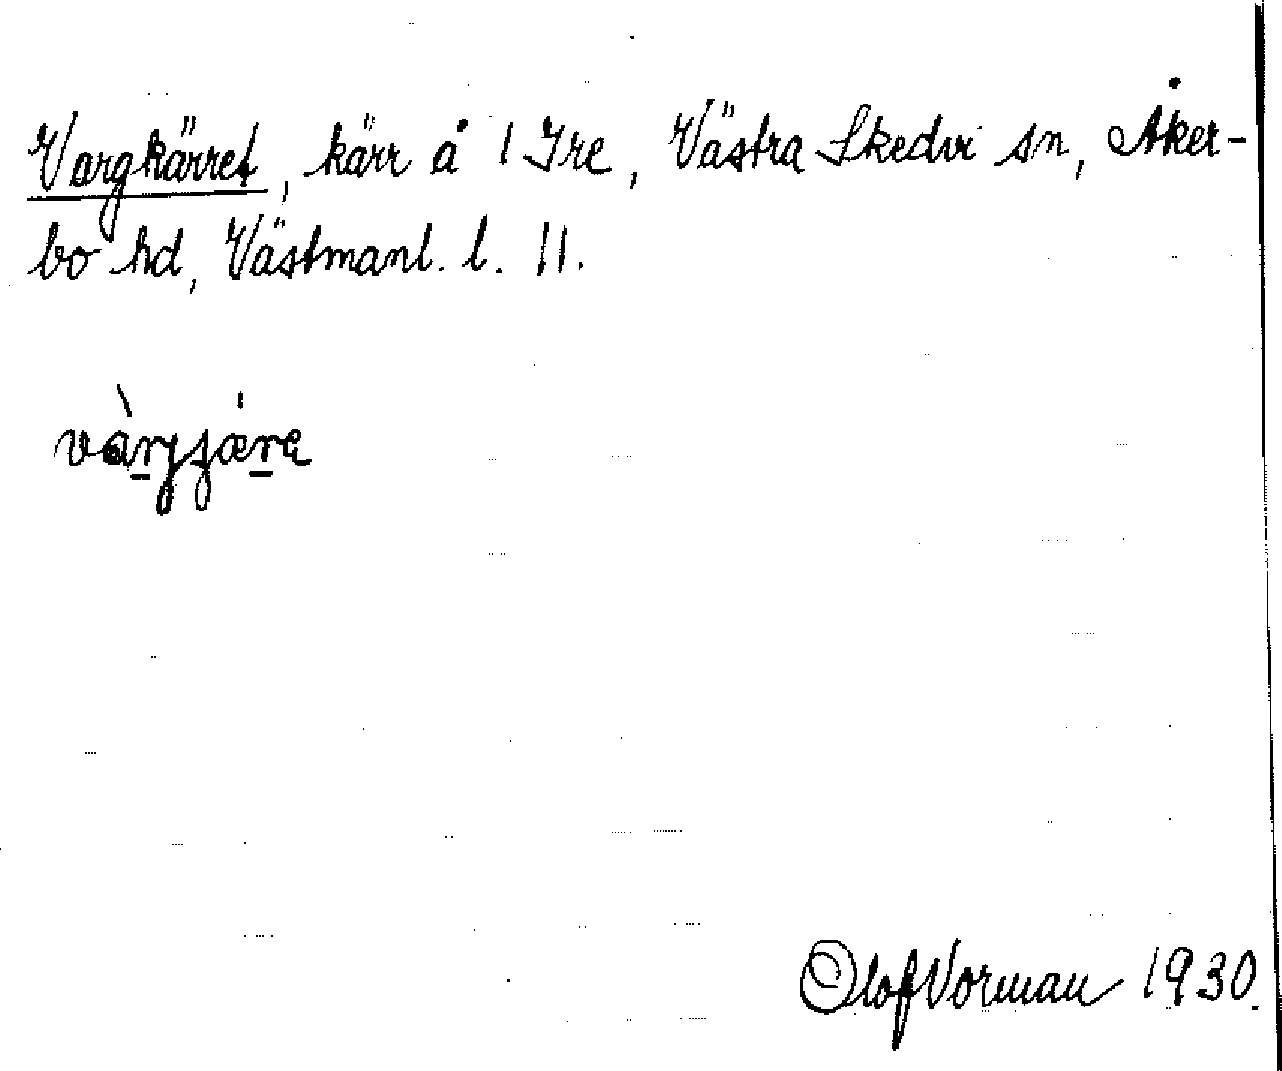 Vargkärret, kärr å 1 Ire, Västra Skedvi sn, Åker-
bo hd, Västmanl. l. 11.
Olof Vorman 1930.